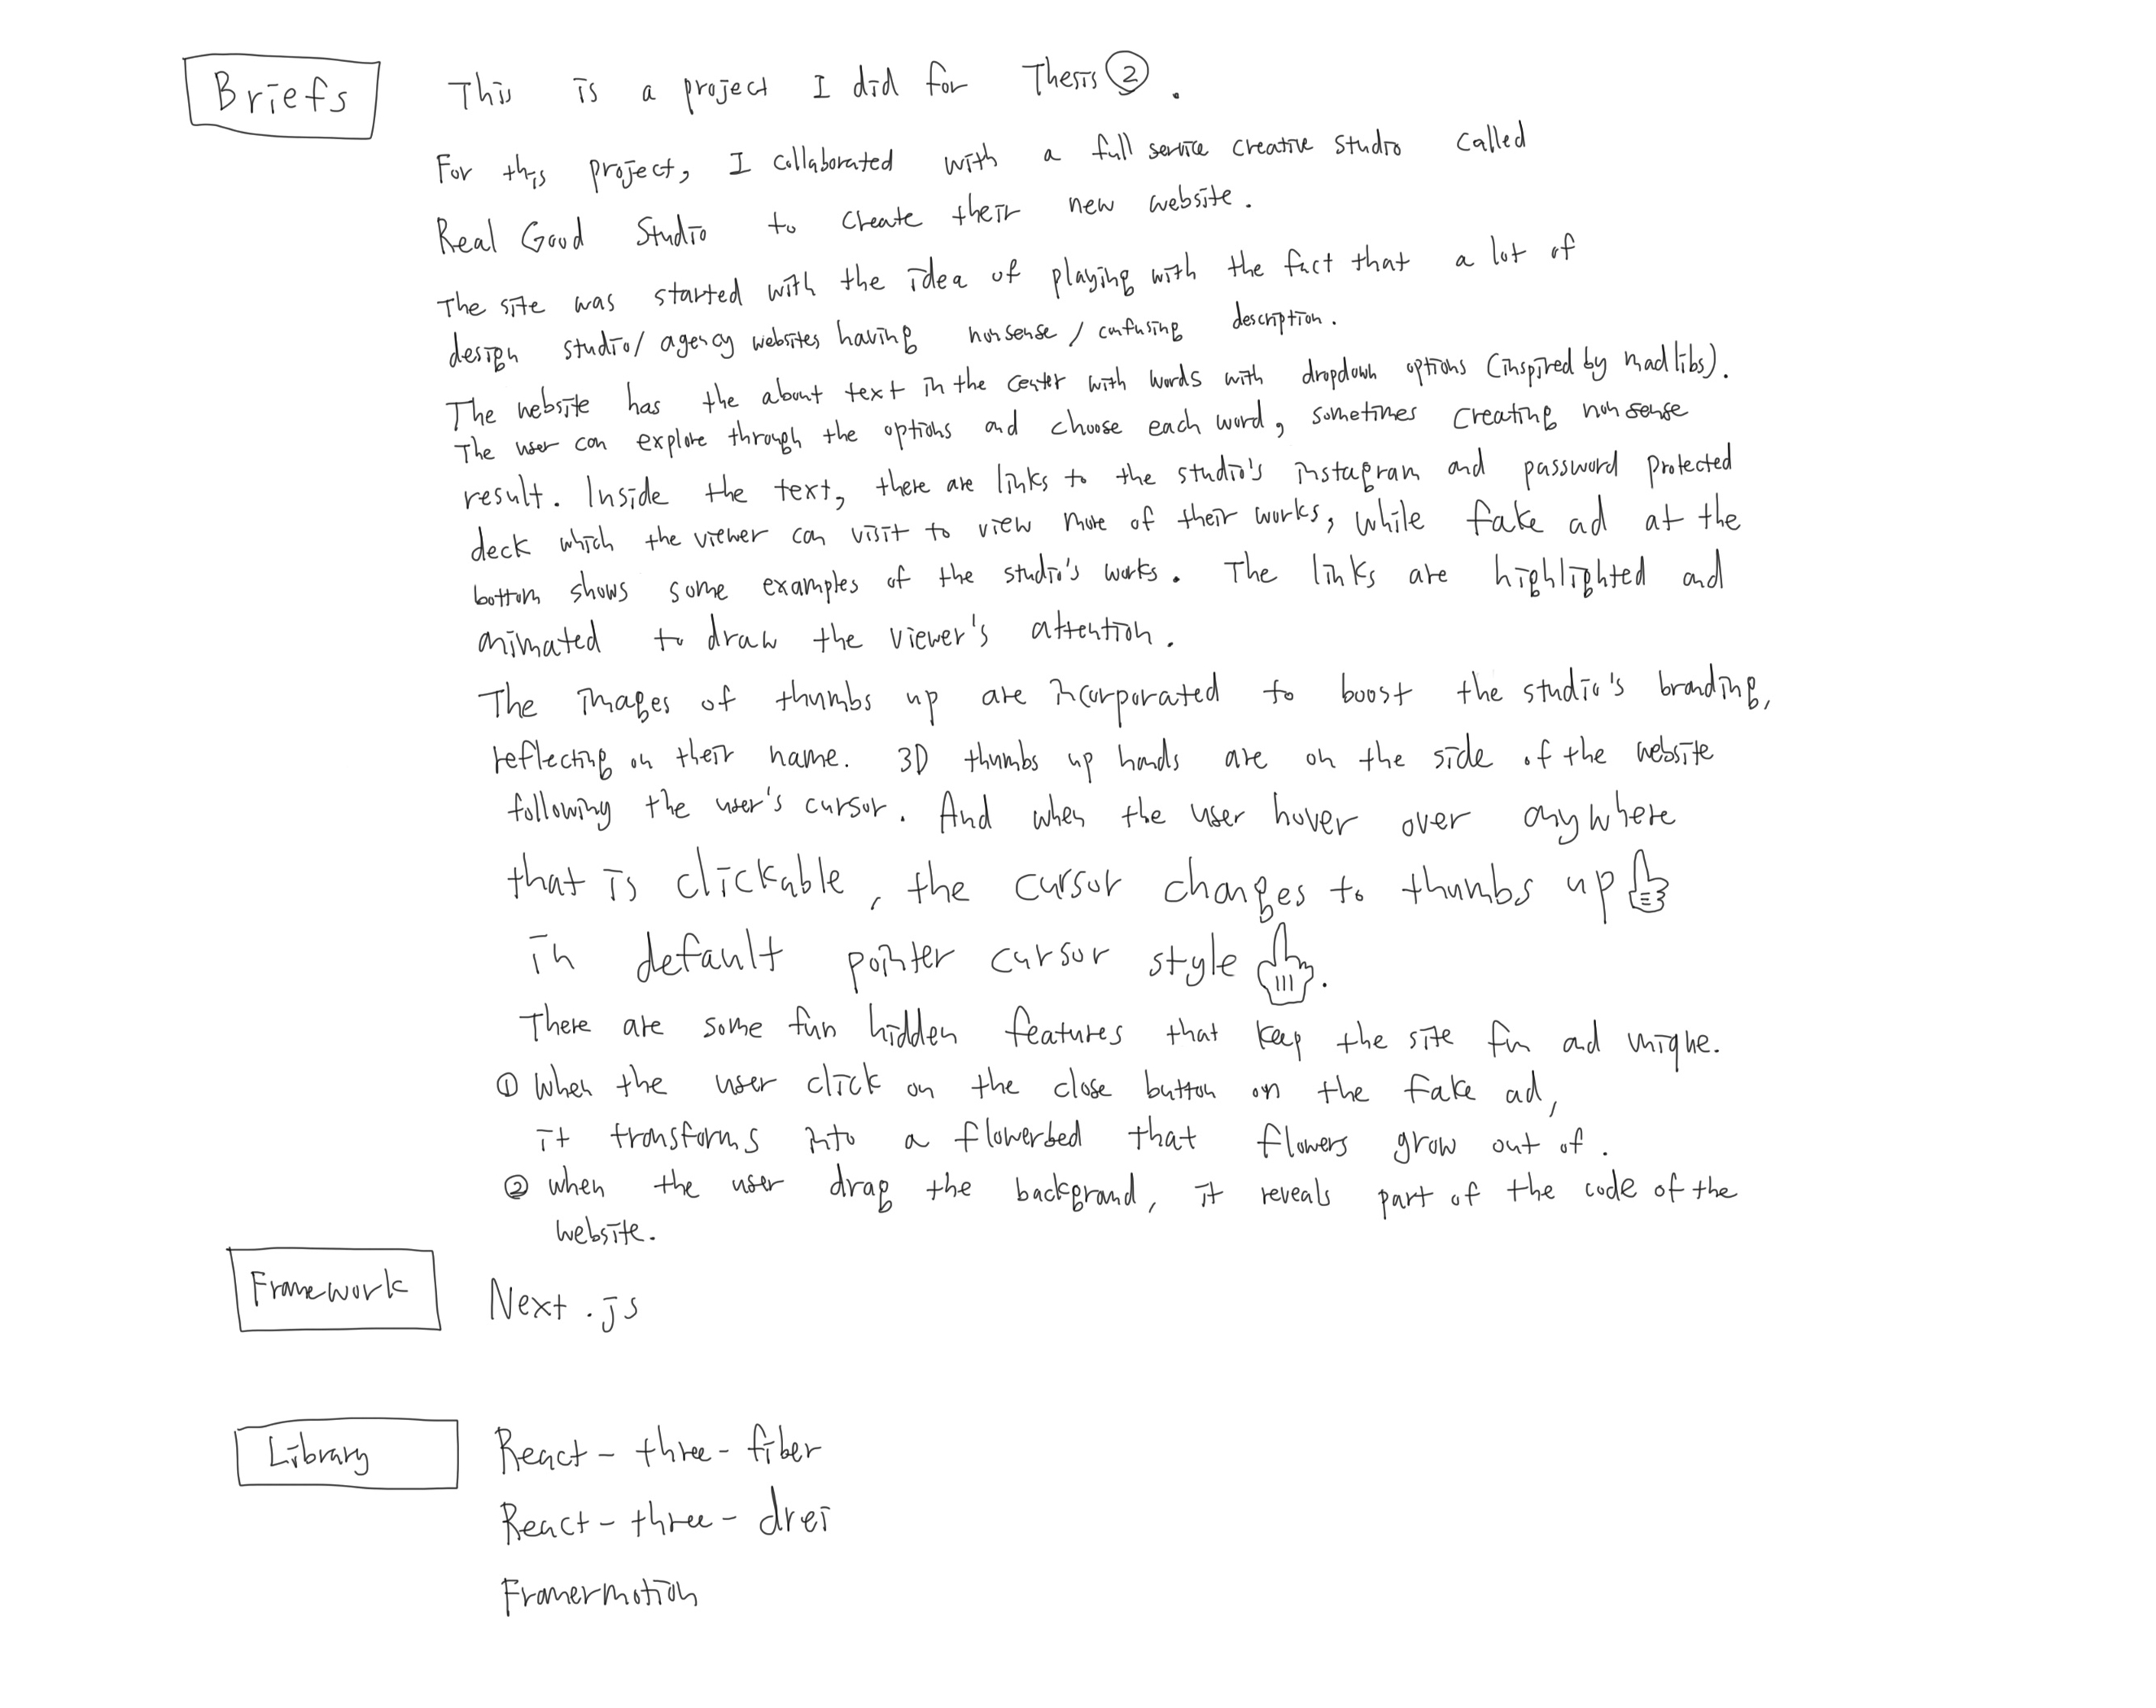 Briefs
This is a project I did for Thesis ②.
For this project, I collaborated with a full service creative studio called
Real Good Studio to create their new website.
The site was started with the idea of playing with the fact that a lot of
design studio/ agency websites having nonsense / confusing description.
The website has the about text in the center with words with dropdown options (inspired by madlibs).
The user can explore through the options and choose each word, sometimes creating nonsense
result. Inside the text, there are links to the studio's instagram and password protected
deck which the viewer can visit to view more of their works, while fake ad at the
bottom shows some examples of the studio's works. The links are highlighted and
animated to draw the viewer's attention.
The images of thumbs up are incorporated to boost the studio's branding,
reflecting on their name. 3D thumbs up hands are on the side of the website
following the user's cursor. And when the user hover over anywhere
that is clickable, the cursor changes to thumbs up
in default pointer cursor style.
There are some fun hidden features that keep the site fun ad unique.
① When the user click on the close button on the fake ad,
it transforms into a flowerbed that flowers grow out of.
② when the user drag the backgrand, it reveals part of the code of the
website.
Framework
Next.js
Library
React-three-fiber
React-three-drei
Framermotion